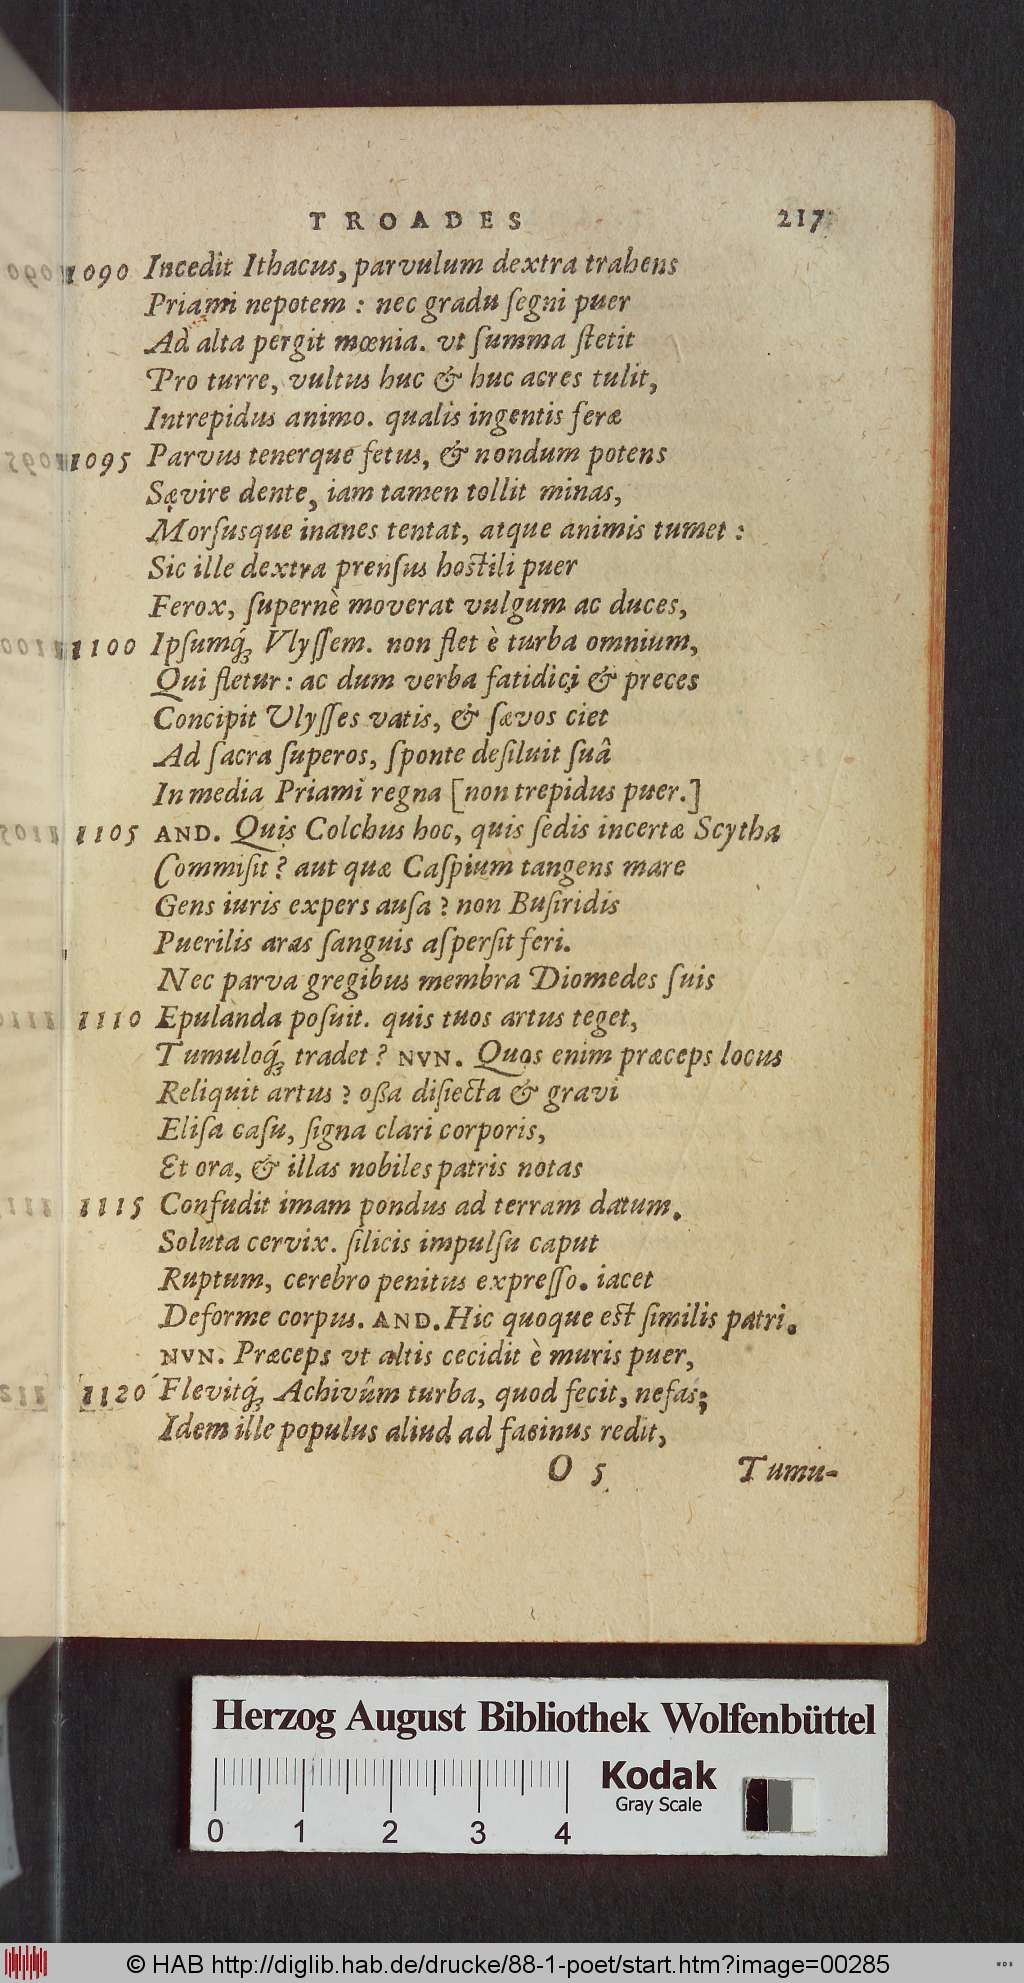 TROADES 217
1090 Incedit Ithacus, parvulum dextra trahens
Priami nepotem : nec gradu ſegni puer
Ad alta pergit mœnia. vt ſumma ſtetit
Pro turre, vultus huc & huc acres tulit,
Intrepidus animo. qualis ingentis feræ
1095 Parvus tenerque fetus, & nondum potens
Sævire dente, iam tamen tollit minas,
Morſusque inanes tentat, atque animis tumet :
Sic ille dextra prenſus hoſtili puer
Ferox, ſupernè moverat vulgum ac duces,
1100 Ipſumq́ꝫ Vlyſſem. non flet è turba omnium,
Qui fletur : ac dum verba fatidici & preces
Concipit Ulyſſes vatis, & ſævos ciet
Ad ſacra ſuperos, ſponte deſiluit ſuâ
In media Priami regna [non trepidus puer.]
1105 AND. Quis Colchus hoc, quis ſedis incertæ Scytha
Commiſit ? aut quæ Caſpium tangens mare
Gens iuris expers auſa ? non Buſiridis
Puerilis aras ſanguis aſperſit feri.
Nec parva gregibus membra Diomedes ſuis
1110 Epulanda poſuit. quis tuos artus teget,
Tumuloq́ꝫ tradet ? NVN. Quos enim præceps locus
Reliquit artus ? oßa diſiecta & gravi
Eliſa caſu, ſigna clari corporis,
Et ora, & illas nobiles patris notas
1115 Confudit imam pondus ad terram datum.
Soluta cervix. ſilicis impulſu caput
Ruptum, cerebro penitus expreſſo. iacet
Deforme corpus. AND. Hic quoque eſt ſimilis patri.
NVN. Præceps vt altis cecidit è muris puer,
1120 Flevitq́ꝫ Achivûm turba, quod fecit, nefas;
Idem ille populus aliud ad facinus redit,
O 5 Tumu-
Herzog August Bibliothek Wolfenbüttel
Kodak
Gray Scale
0 1 2 3 4
© HAB http://diglib.hab.de/drucke/88-1-poet/start.htm?image=00285